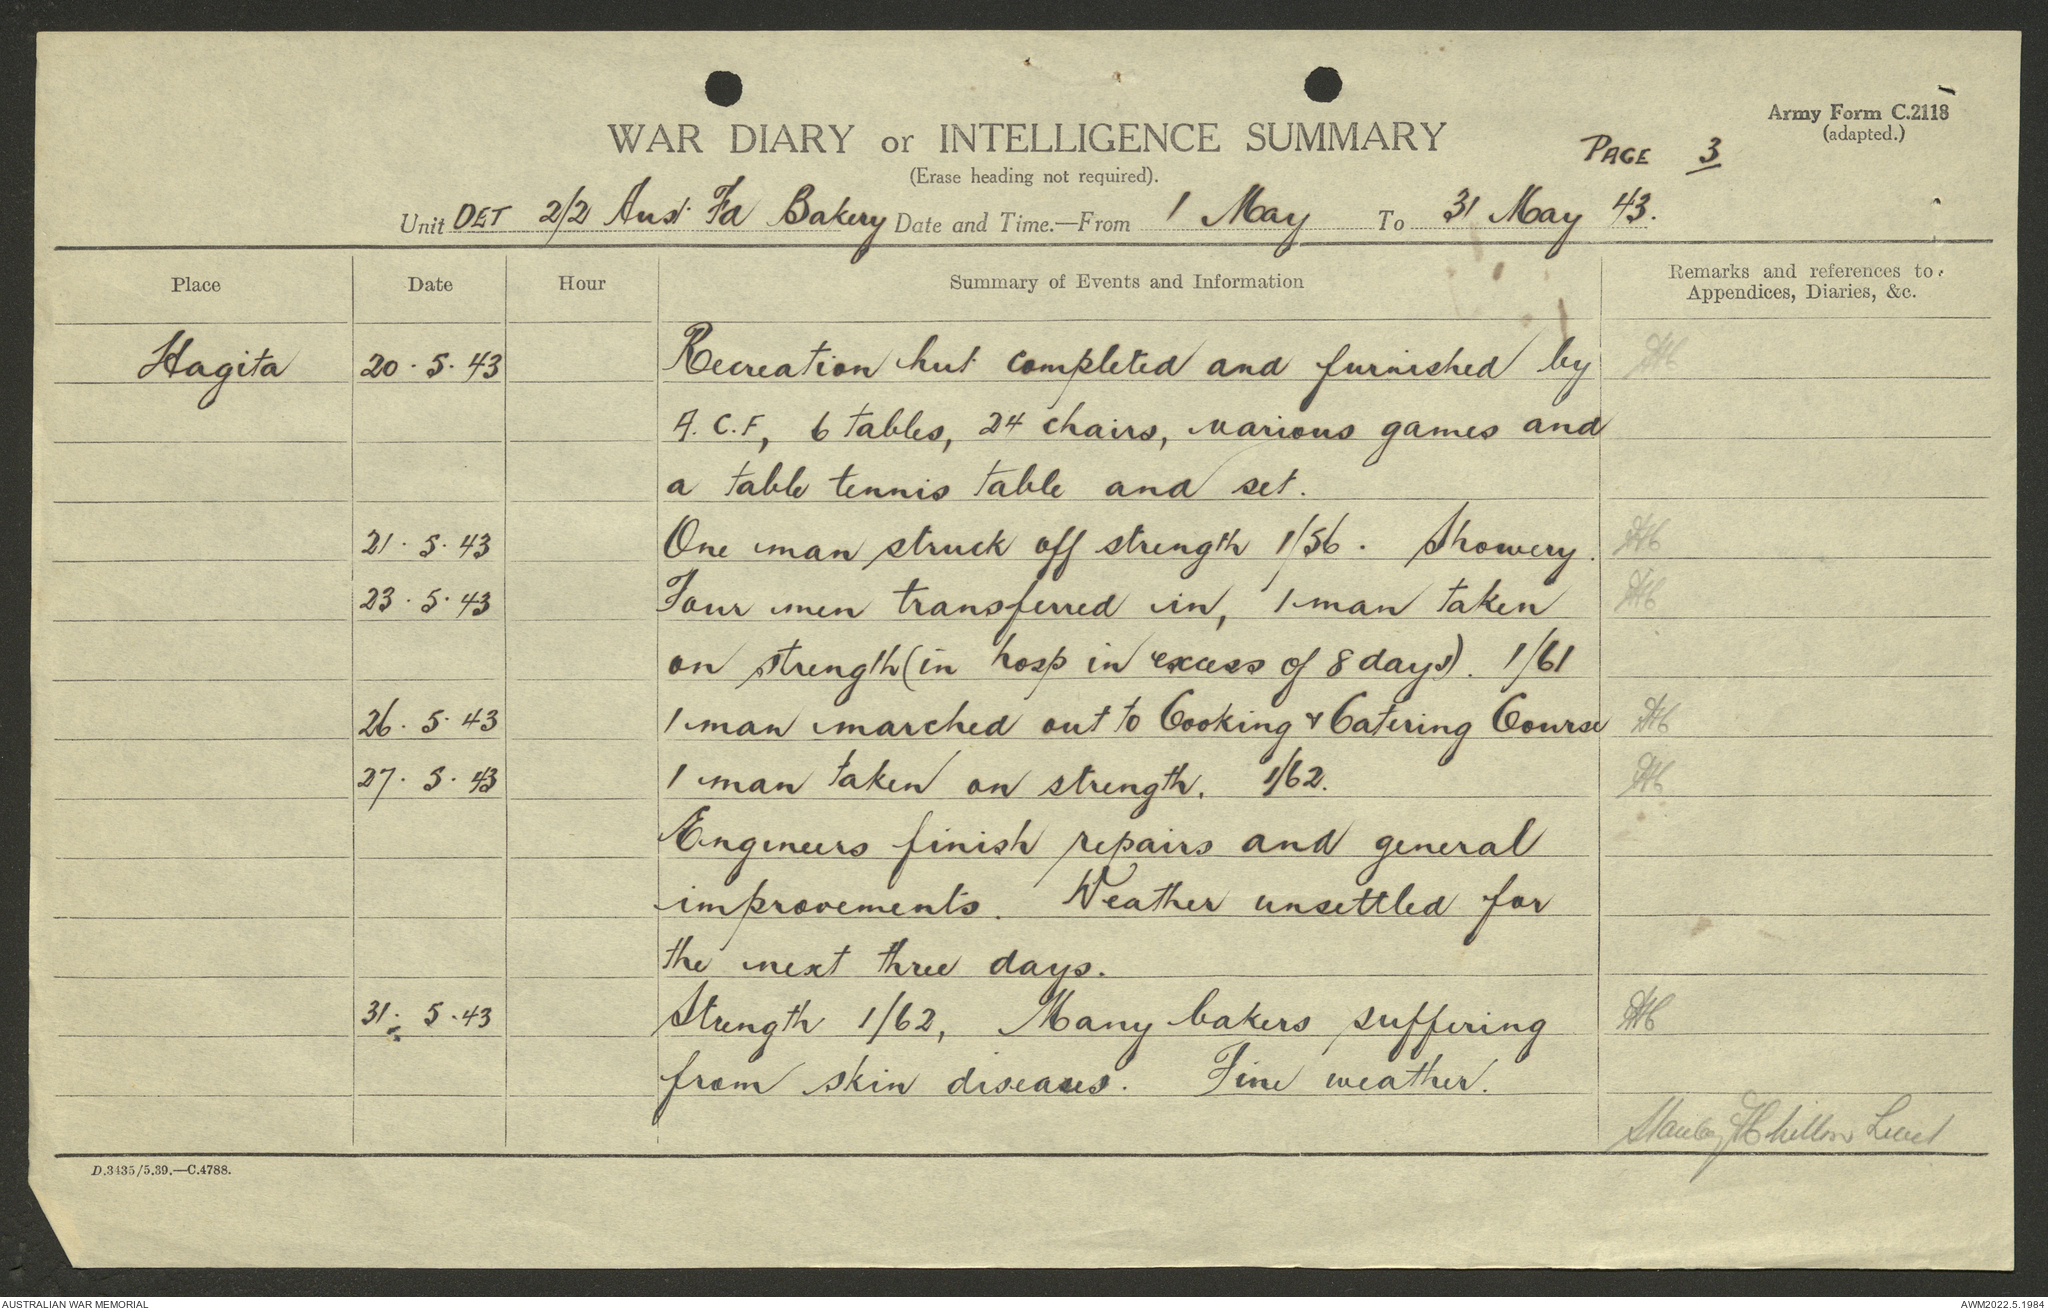 Army Form C.2118
(adapted.)
WAR DIARY or INTELLIGENCE SUMMARY
PAGE 3
(Erase heading not required).
Unit DET 2/2 Aust Fd Bakery Date and Time.—From 1 May To 31 May 43.
Place Date Hour Summary of Events and Information Remarks and references to Appendices, Diaries, &c.
Hagita 20.5.43 Recreation hut completed and furnished by
A.C.F, 6 tables, 24 chairs, various games and
a table tennis table and set.
21.5.43 One man struck off strength 1/56. Showery.
23.5.43 Four men transferred in, 1 man taken
on strength (in hosp in excess of 8 days). 1/61
26.5.43 1 man marched out to Cooking & Catering Course
27.5.43 1 man taken on strength. 1/62.
Engineers finish repairs and general
improvements. Weather unsettled for
the next three days.
31.5.43 Strength 1/62, Many bakers suffering
from skin diseases. Fine weather.
Lieut
D.3435/5.39.—C.4788.
AUSTRALIAN WAR MEMORIAL
AWM2022.5.1984